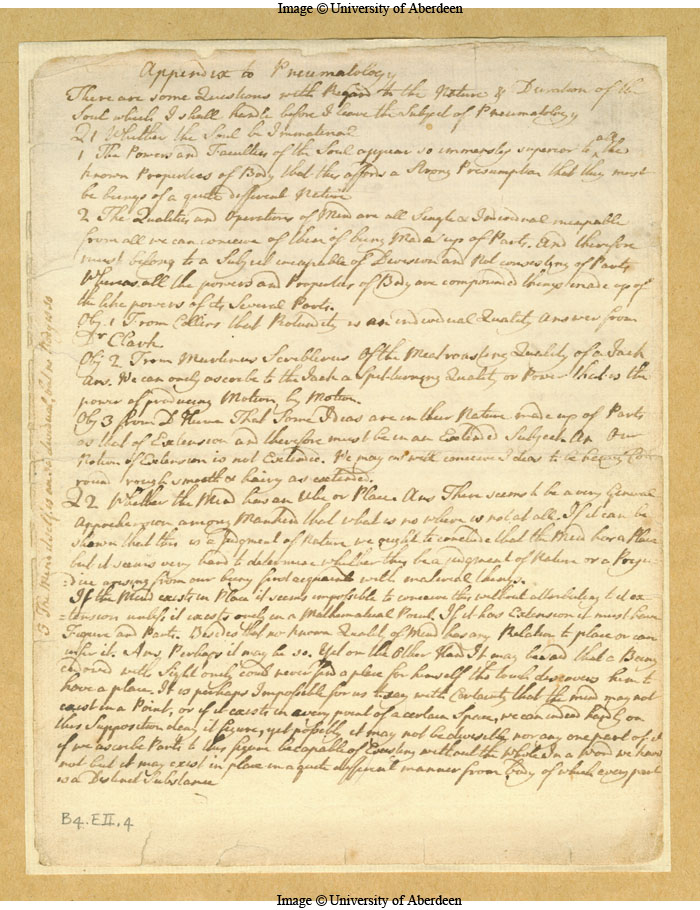 Image © University of Aberdeen
Appendix to Pneumatology
There are some Questions with Regard to the Nature & Duration of the
Soul which I shall handle before I leave the Subject of Pneumatology
Q 1 Whether the Soul be Immaterial
1 The Powers and Faculties of the Soul appear so immensly superior to all the
known Properties of Body that this affords a Strong Presumption that they must
be beings of a quite different Nature
2 The Qualities and Operations of Mind are all Single & Individual incapable
from all we can conceive of them of being Made up of Parts. And therefore
must belong to a Subject incapable of Division and Not consisting of Parts
Whereas all the powers and Properties of Body are compounded things made up of
the like powers of its Several Parts.
Obj 1 From Collins that Rotundity is an individual Quality Answer from
Dr Clark
Obj 2 From Martinus Scriblerus Of the Meat roasting Quality of a Jack
Ans. We can only ascribe to the Jack a Spit-turning Quality or Power that is the
power of producing Motion by Motion.
Obj 3 from D Hume That Some Ideas are in their Nature made up of Parts
as that of Extension and therefore must be in an Extended Subject. An Our
Notion of Extension is not Extended. We may as well conceive Ideas to be heavy
round rough smooth or hairy as extended.
Q 2 Whether the Mind has an Ubi or Place. Ans There seems to be a very General
Apprehension among Mankind that what is no where is not at all. If it can be
shewn that this is a Judgment of Nature we ought to conclude that the Mind has a Place
but it seems very hard to determine whether this be a judgment of Nature or a Preju
=dice arising from our being first acquainted with material things.
If the Mind exists in Place it seems impossible to conceive this without attributing to it ex
=tension unless it exists only in a Mathematical Point. If it has Extension it must have
Figure and Parts. Besides that no known Quality of Mind has any Relation to place or can
infer it. Ans. Perhaps it may be so. Yet on the Other Hand It may be said that a Being
endowed with Sight only coud never find a place for himself tho touch discovers him to
have a place. It is perhaps Impossible for us to say with Certainty that the mind may not
exist in a Point, or if it exists in every point of a certain Space, we can indeed hardly on
this Supposition deny it figure, yet possibly it may not be divisible, nor any one part of it
if we ascribe Parts to this figure be capable of Existing without the Whole. In a Word we know
not but it may exist in place in a quite different manner from Body of which every part
is a Distinct Substance
3 The Mind itself is an individual, but no Body is so
B4.EII.4
Image © University of Aberdeen